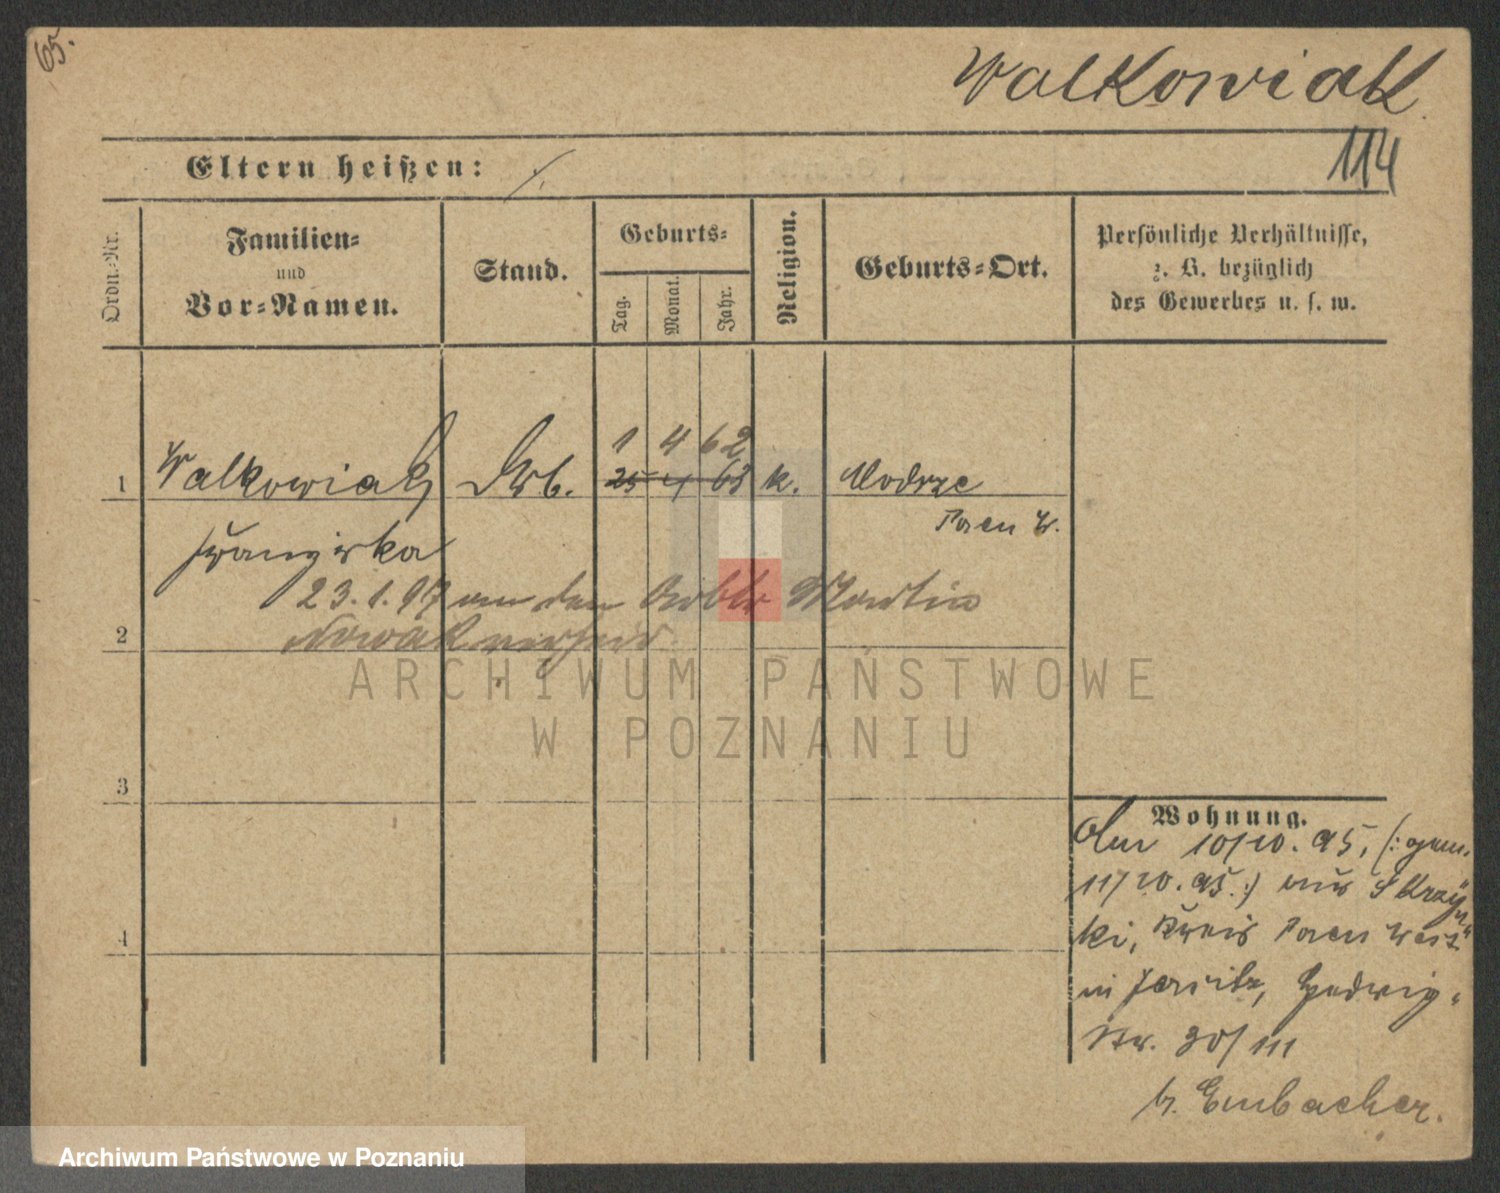 65.
Walkowiak
114
Eltern heißen: ./.
Ordn.-Nr.
Familien-
und
Vor-Namen.
Stand.
Geburts-
Tag.
Monat.
Jahr.
Religion.
Geburts-Ort.
Persönliche Verhältnisse,
z. B. bezüglich
des Gewerbes u. s. w.
1 4 62
1 Walkowiak 25 4 63 k. Modrze
Posen W.
Franziska
23.1.97 an den Martin
2 Nowak verheir.
3
4
Wohnung.
Am 10/10. 95, (: gem.
11/10. 95 :) aus Skrzyn-
ki, Kreis Posen West
in Jersitz, Hedwig-
Str. 30/III
b. Embacher.
ARCHIWUM PAŃSTWOWE
W POZNANIU
Archiwum Państwowe w Poznaniu